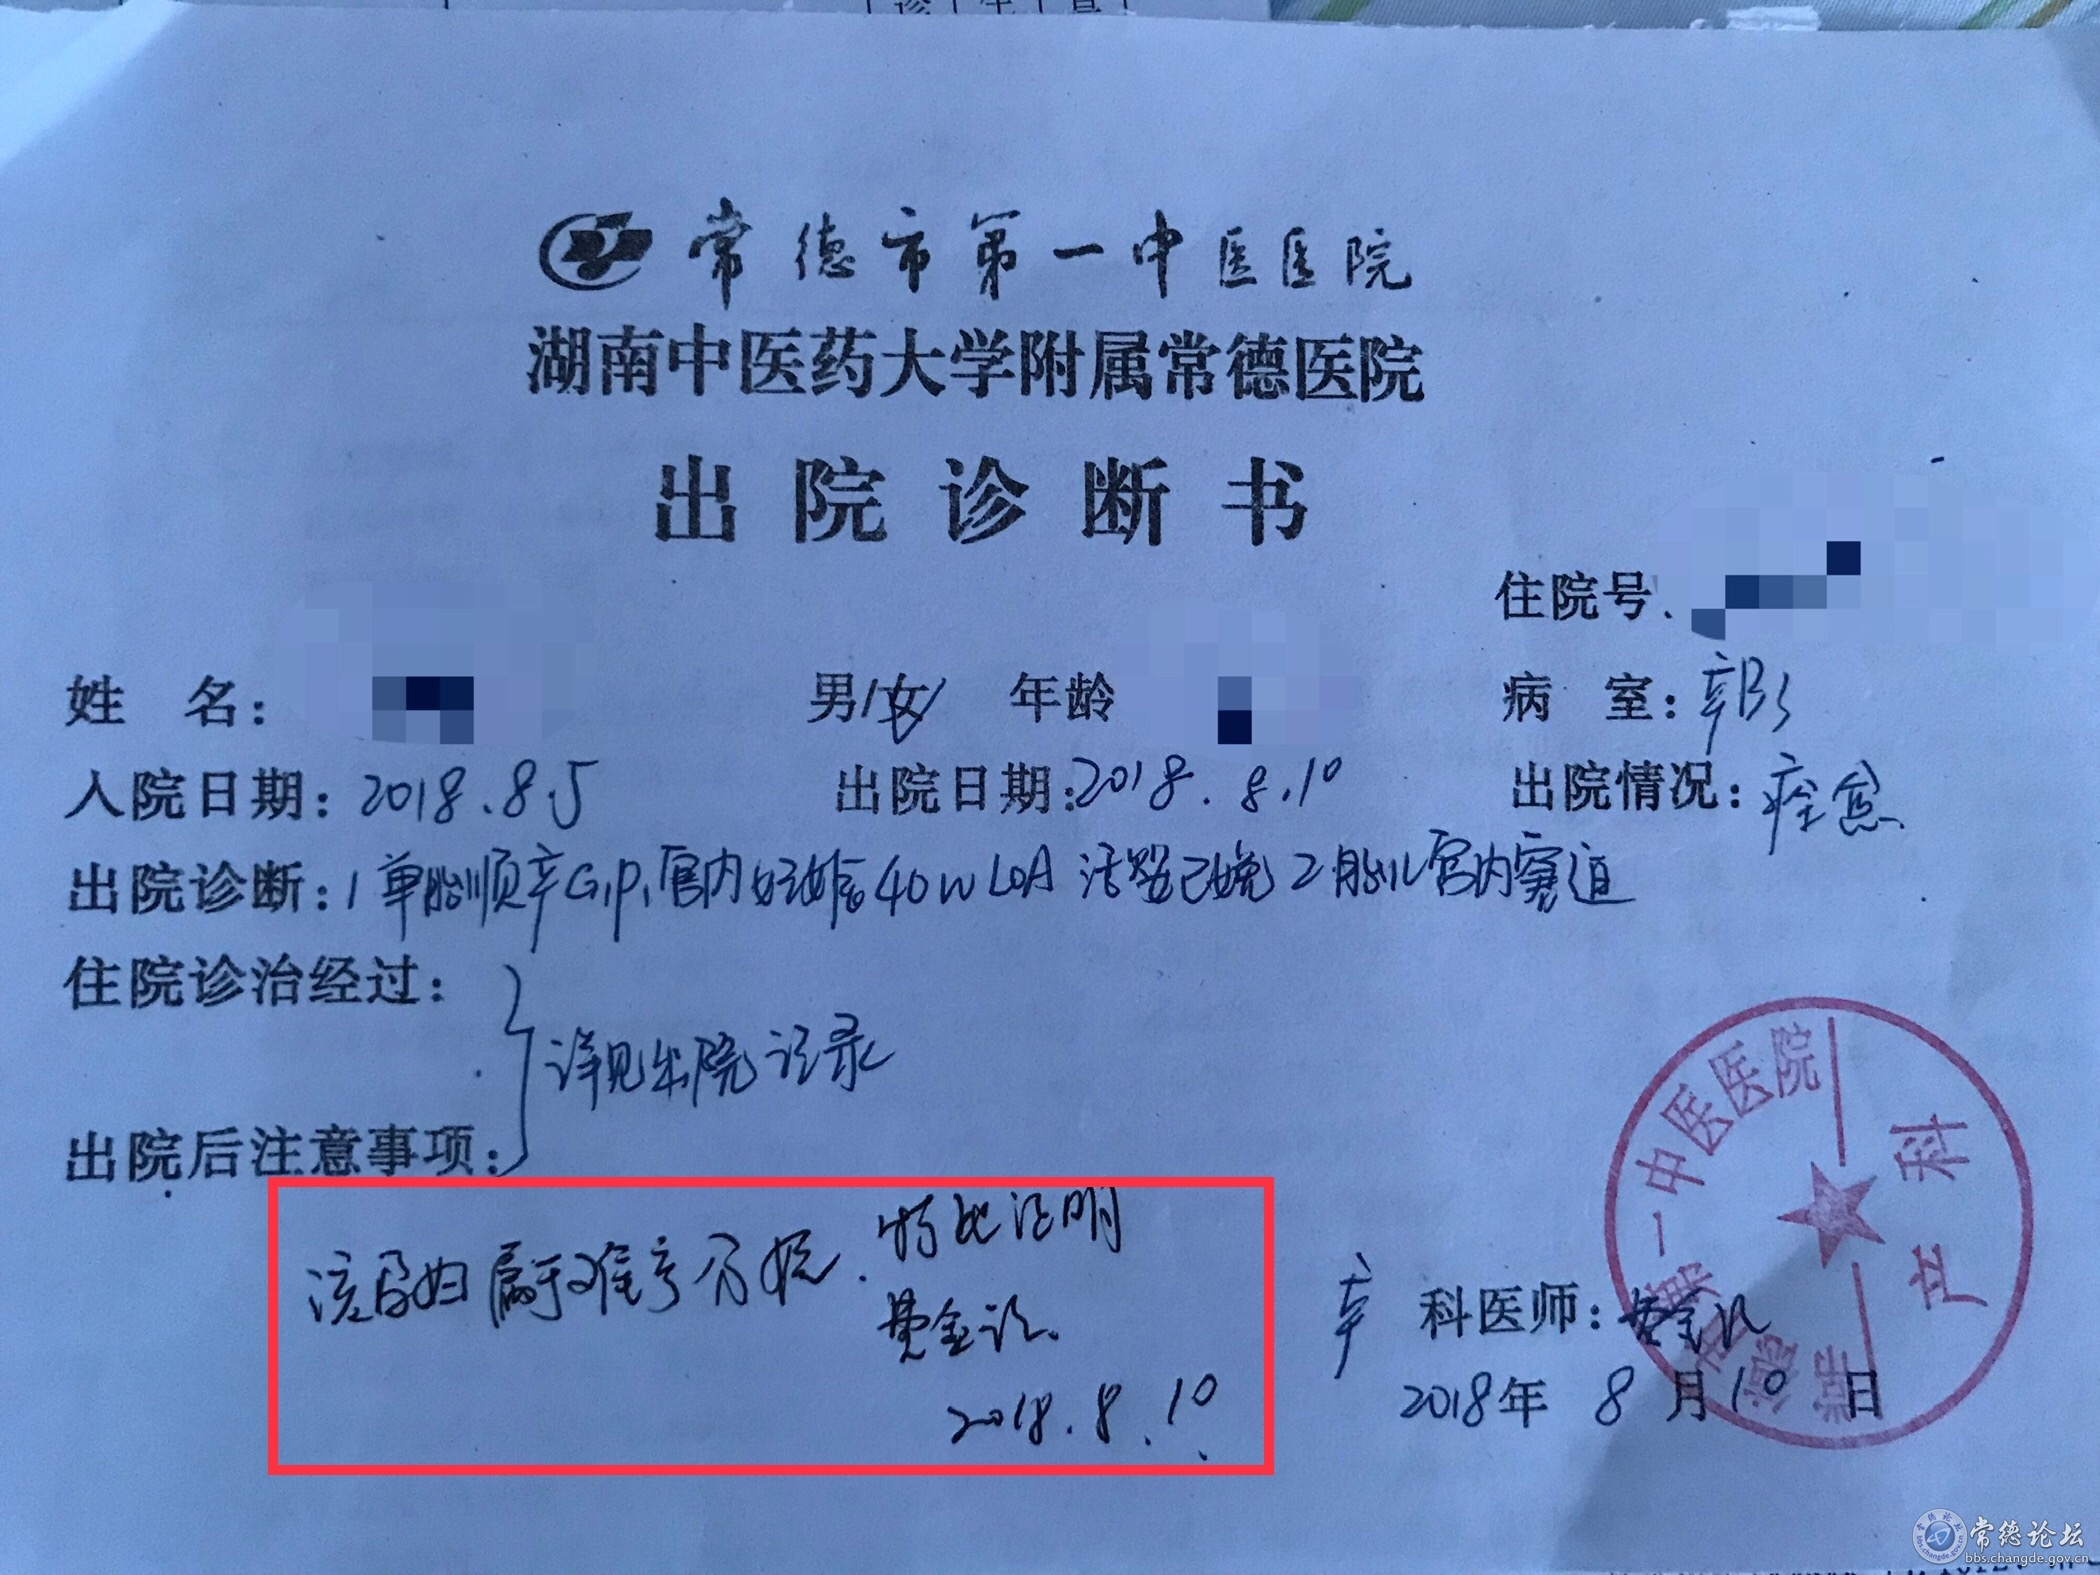 常德市第一中医医院
湖南中医药大学附属常德医院
出院诊断书
住院号
姓 名： 男/女 年龄 病 室：
入院日期：2018.8.5 出院日期：2018.8.10 出院情况：痊愈
出院诊断：1 单胎顺产G1P1宫内妊娠40W LOA 活婴已娩 2 胎儿宫内窘迫
住院诊治经过：
详见出院记录
出院后注意事项：
该孕妇属于难产分娩. 特此证明
2018.8.10
产 科医师：
2018年 8 月 10 日
常德市第一中医医院
产科
常德论坛
bbs.changde.gov.cn